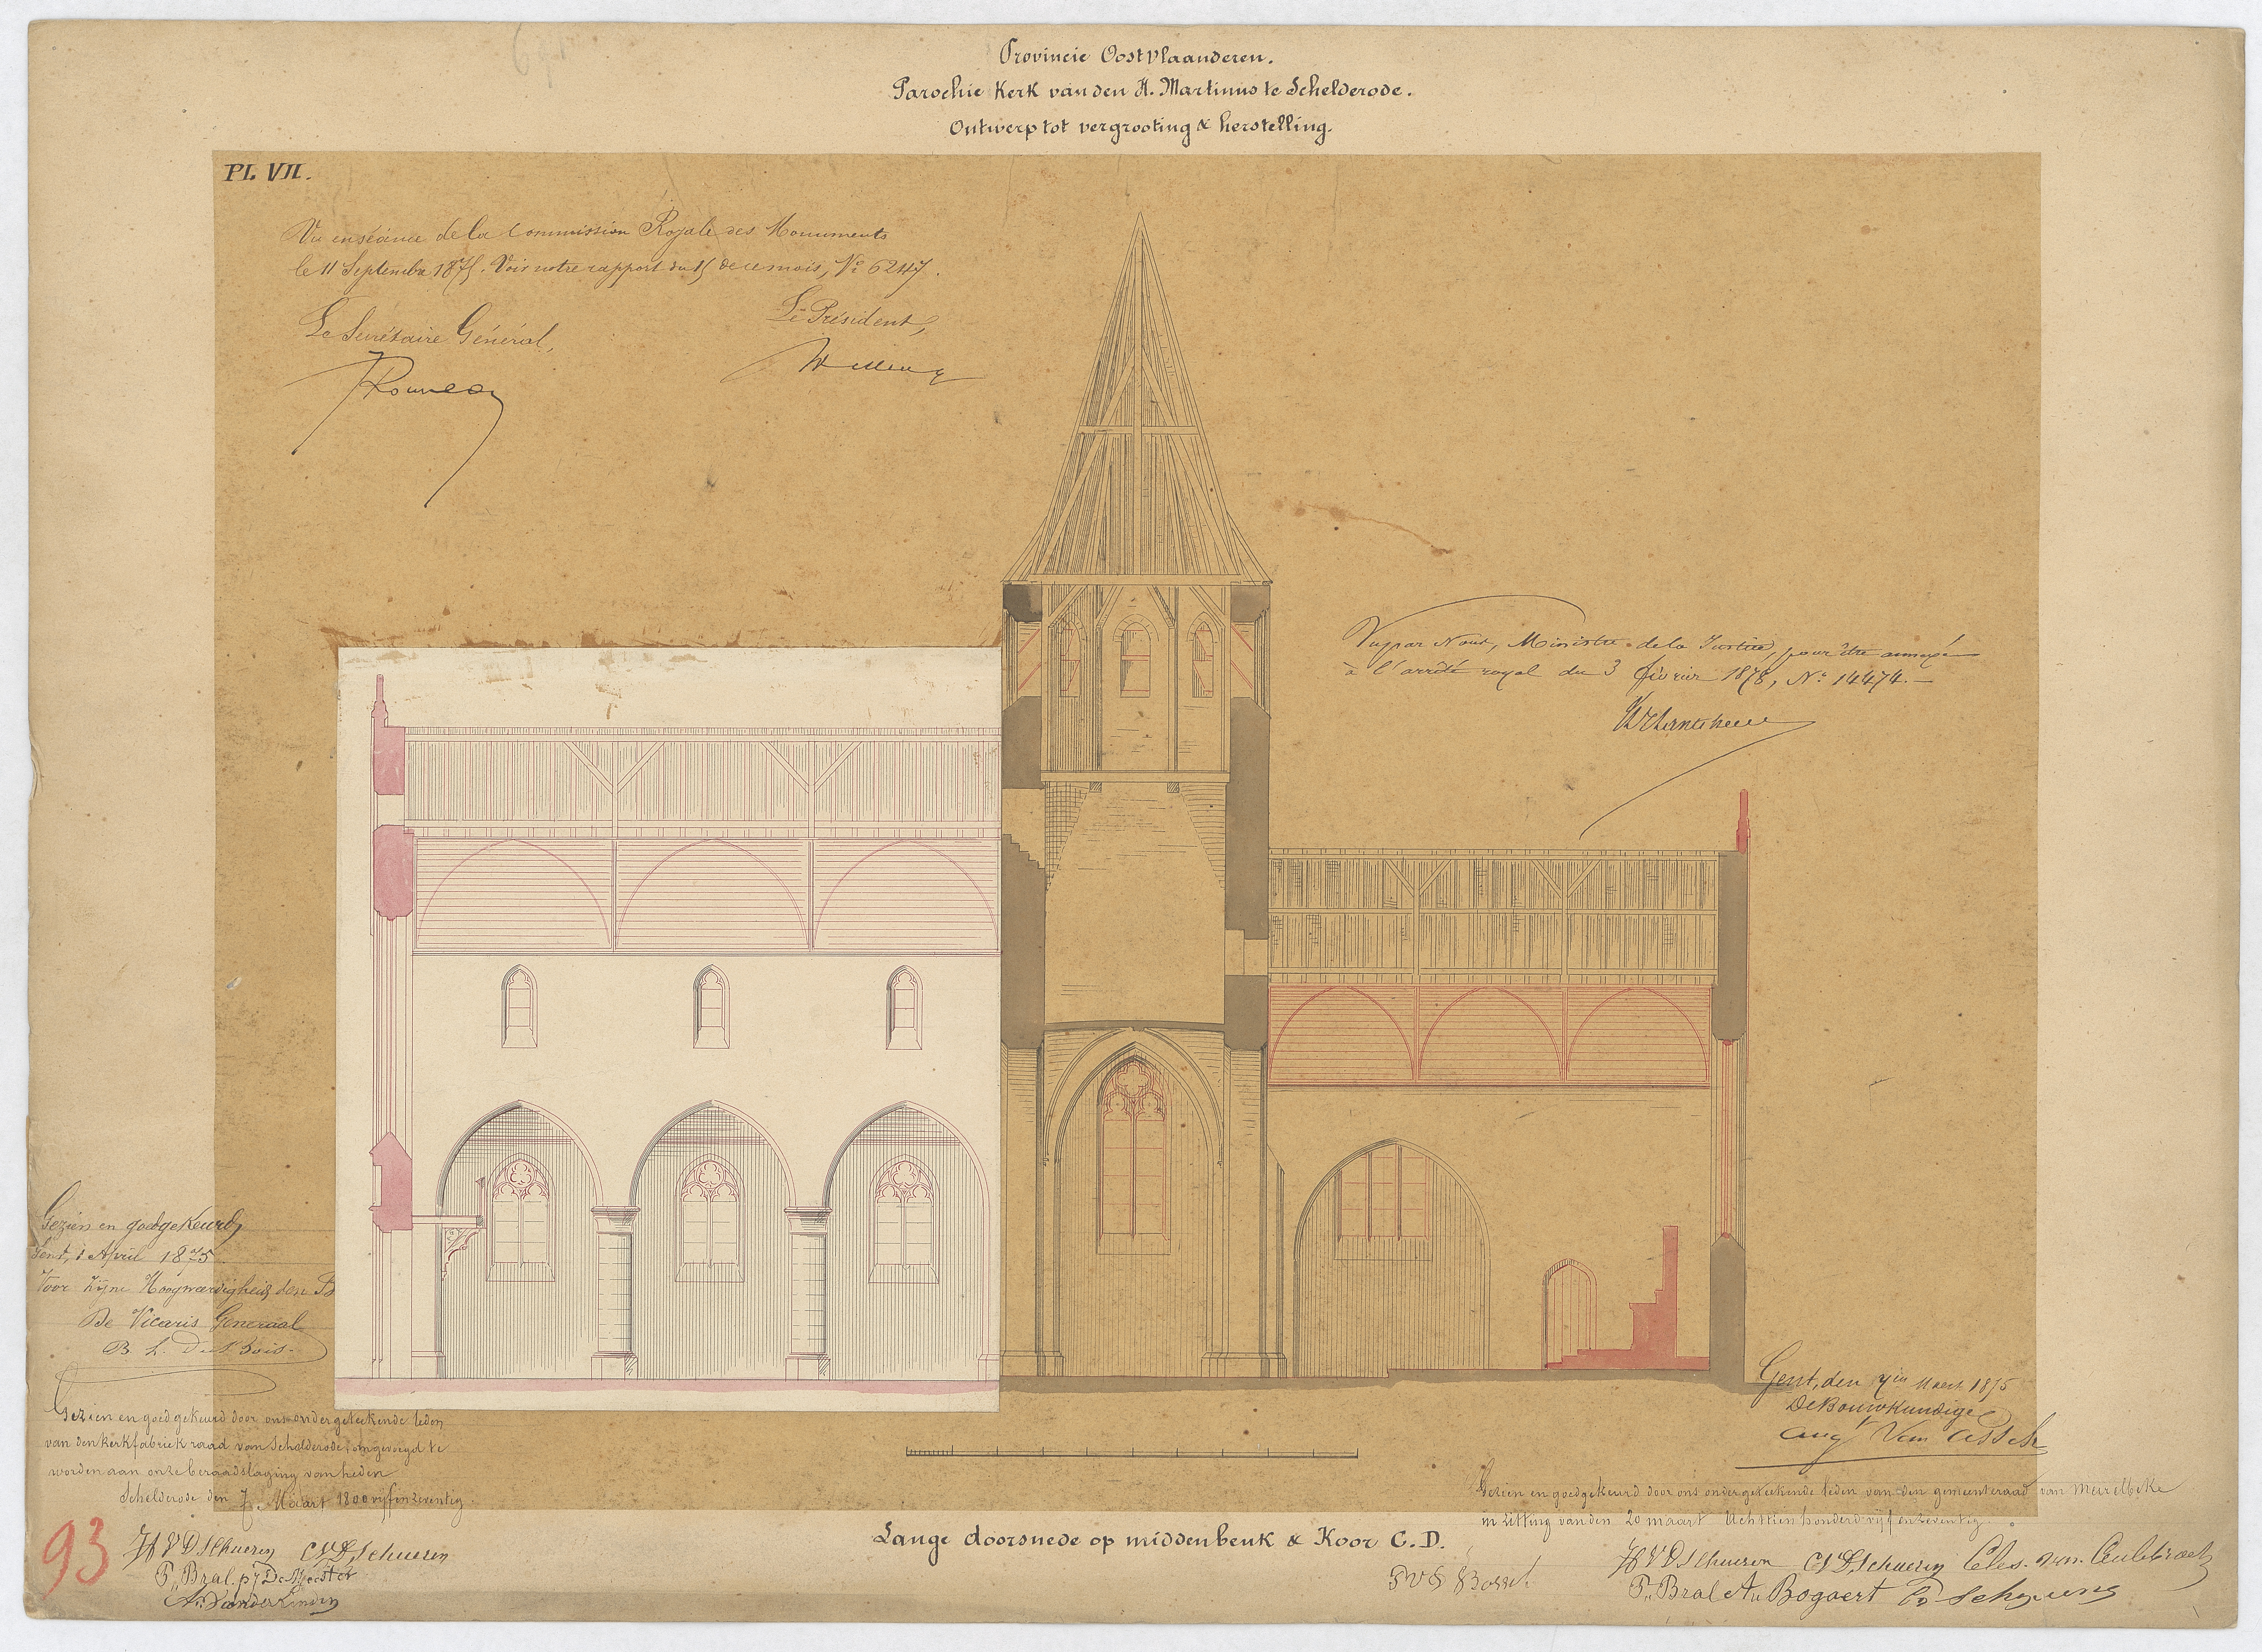 Provincie Oostvlaanderen.
Parochie Kerk van den H. Martinus te Schelderode.
Ontwerp tot vergrooting & herstelling.
PL VII.
Vu en séance de la Commission Royale des Monuments
le 11 Septembre 1875. Voir notre rapport du 15 de ce mois, No 6247.
Le Secrétaire Général,
Le Président,
Rousseau
Wellens
Vu par Nous, Ministre de la Justice, pour être annexé
à l'arrêté royal du 3 février 1878, No 14474.
Gezien en goedgekeurd,
Gent, 1 April 1875
Voor zijne Hoogwaerdigheid den B
De Vicaris Generaal
Gezien en goedgekeurd door ons ondergeteekende leden
van den kerkfabriek raad van Schelderode, omgevoegd te
worden aan onze beraadslaging van heden
Schelderode den 7 Maart 1800 vijf en zeventig
93
P. Bral. De Meester
A. Vanderlinden
Gent, den 7en Maert 1875
De Bouwkundige
Aug Van Assche
Lange doorsnede op middenbeuk & Koor C. D.
Gezien en goedgekeurd door ons ondergeteekende leden van den gemeenteraad van Meirelbeke
in zitting van den 20 maart Achttien honderd vijf en zeventig.
P. Bral A. Bogaert